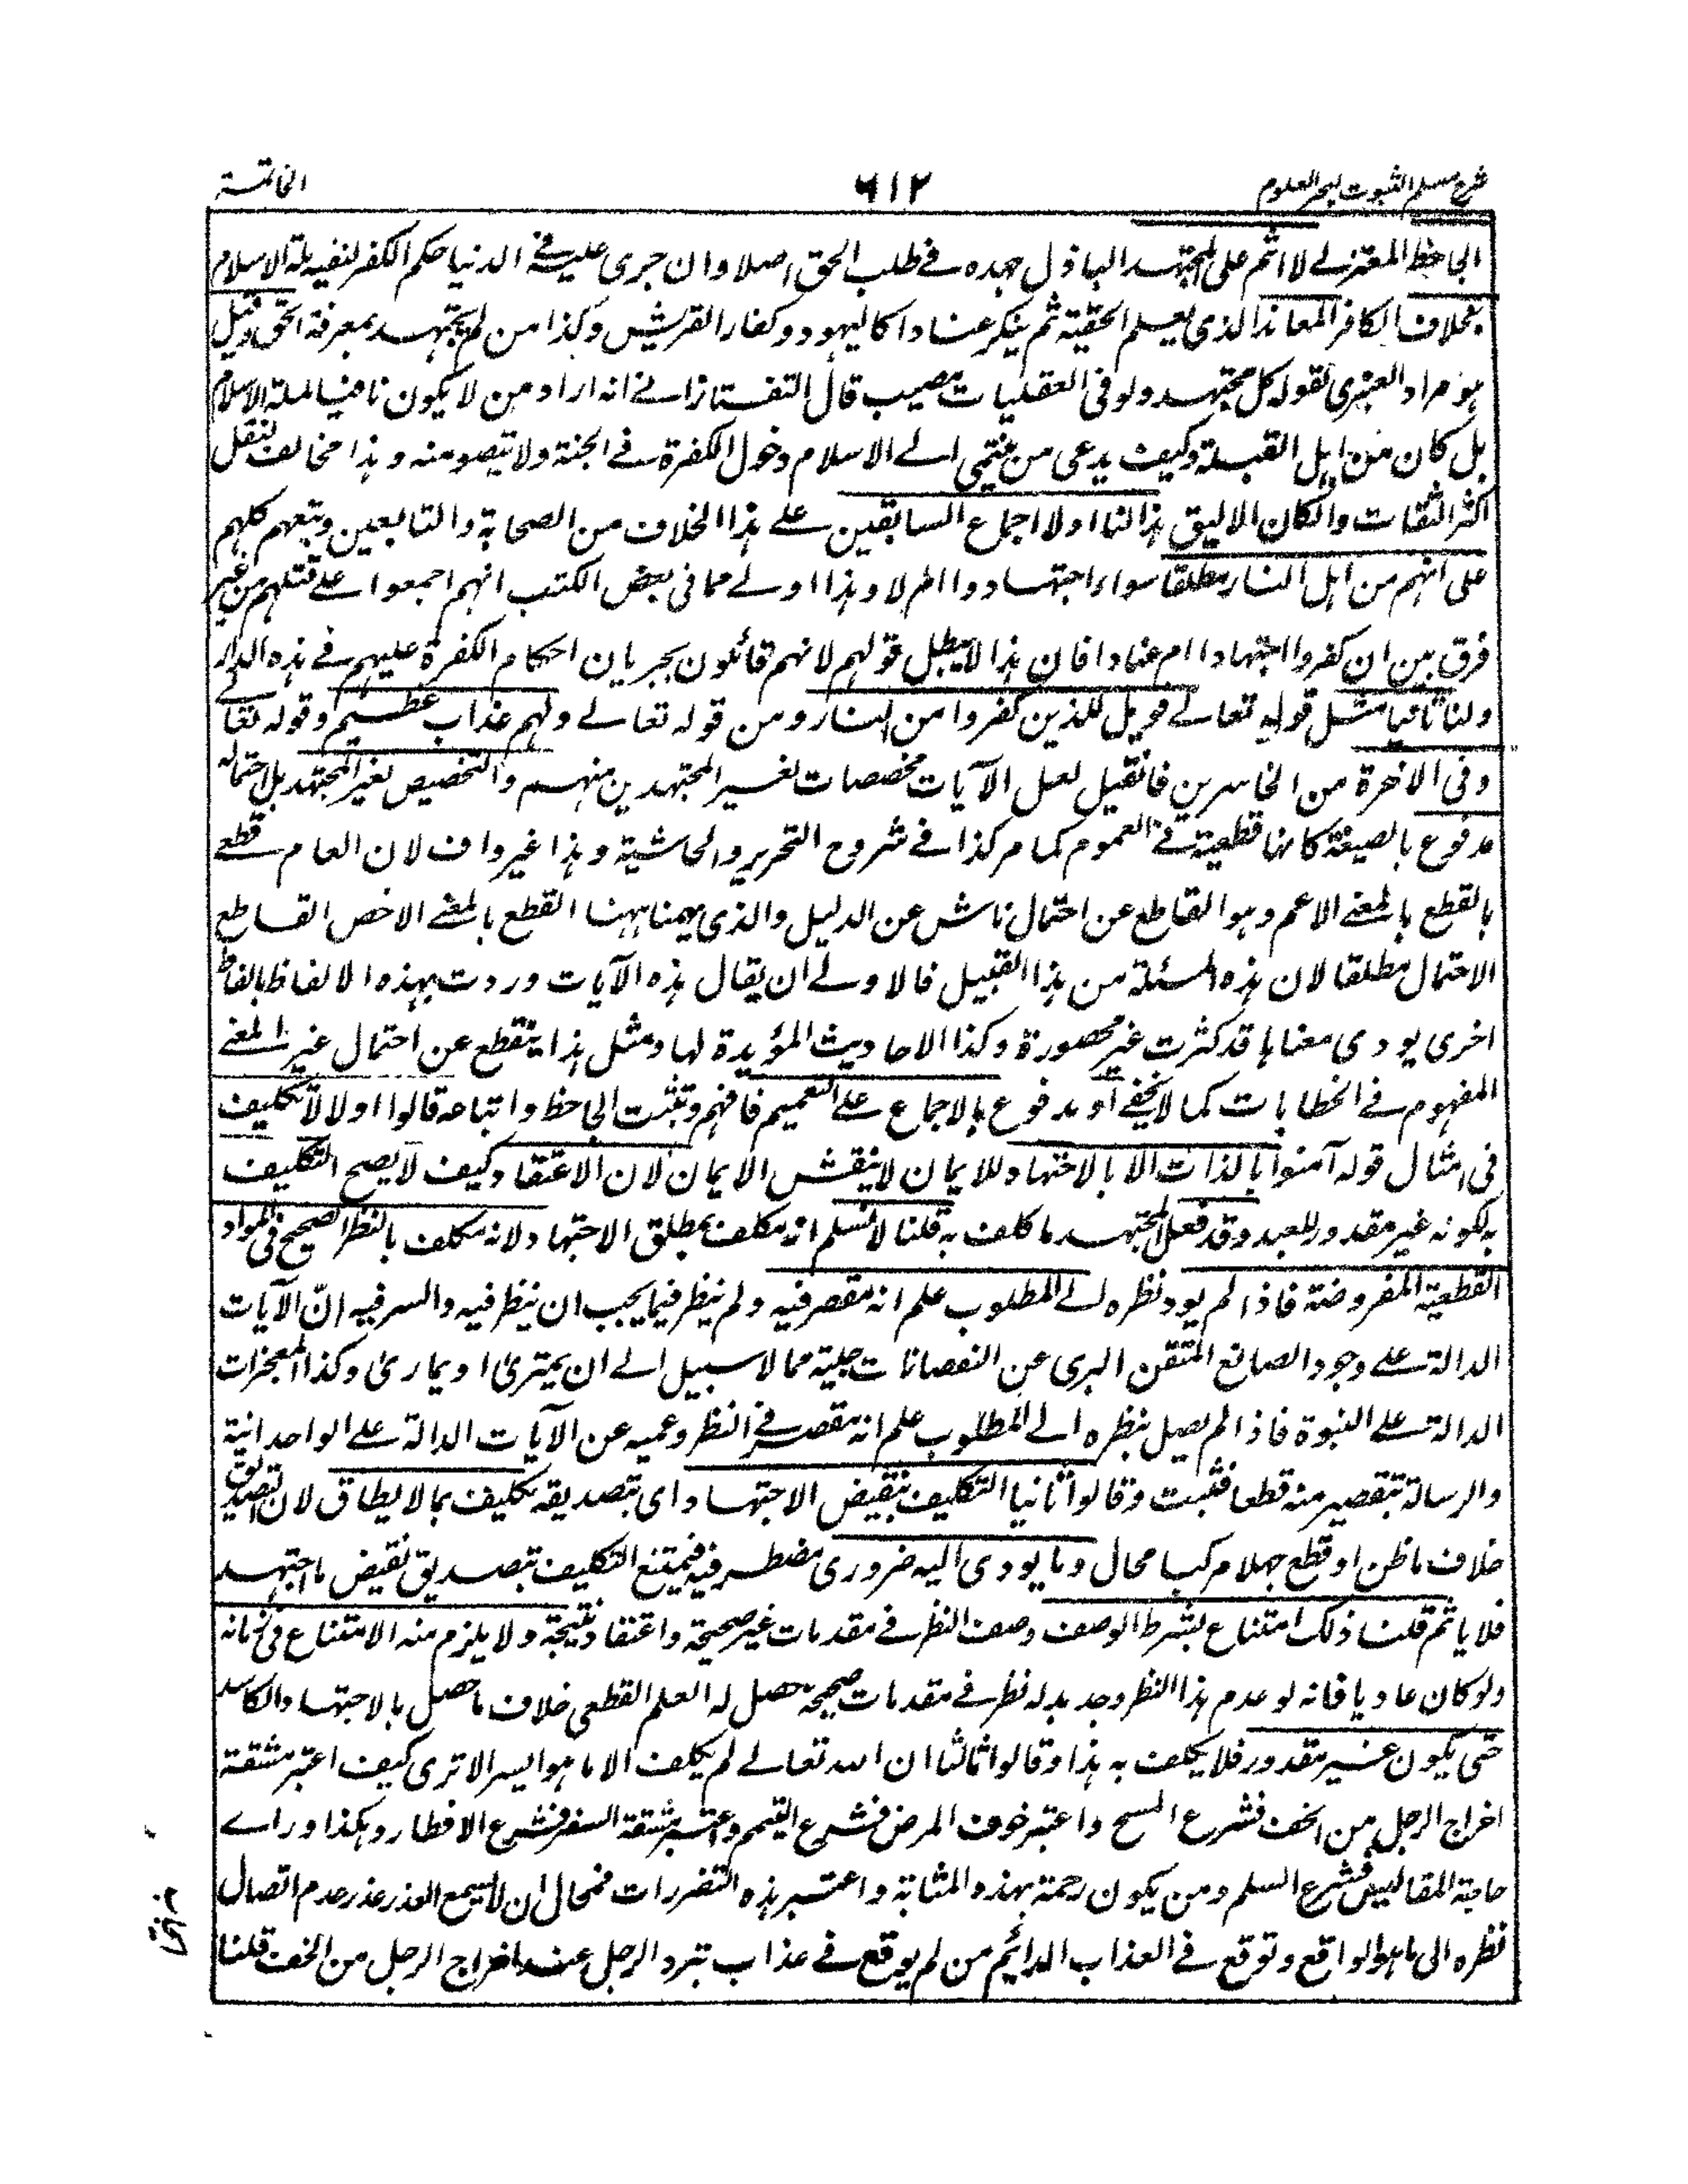 شرح مسلم الثبوت لبحر العلوم
٦١٢
الخاتمة
الجاحظ المعتزلي لا اثم على المجتهد الباذل جهده في طلب الحق اصلا وان جرى عليه في الدنيا حكم الكفر لنفيه ملة الاسلام
بخلاف الكافر المعاند الذي يعلم الحقية ثم ينكر عنادا كاليهود وكفار القريش وكذا من لم يجتهد بمعرفة الحق وقيل
هو مراد العنبري لقوله كل مجتهد ولو في العقليات مصيب قال التفتازاني انه اراد من لا يكون نافيا لملة الاسلام
بل كان من اهل القبلة وكيف يدعى من ينتمي الى الاسلام دخول الكفرة في الجنة ولا تيصو منه وهذا مخالف لنقل
اكثر الثقات وان كان الاليق هذا لنا اولا اجماع السابقين على هذا الخلاف من الصحابة والتابعين وتبعهم كلهم
على انهم من اهل النار مطلقا سواء اجتهدوا ام لا وهذا اولى مما في بعض الكتب انهم اجمعوا على قتلهم من غير
فرق بين ان كفروا اجتهادا ام عنادا فان هذا لا يبطل قولهم لانهم قائلون بجريان احكام الكفرة عليهم في هذه الدار
ولنا ثانيا مثل قوله تعالى فويل للذين كفروا من النار ومن قوله تعالى ولهم عذاب عظيم وقوله تعالى
وفي الاخرة من الخاسرين فان قيل لعل الآيات مخصصات لغير المجتهدين منهم والتخصيص لغير المجتهد بل احتماله
مدفوع بالصيغة كانها قطعية في العموم كما مر كذا في شروح التحرير والحاشية وهذا غير واف لان العام قطعي
بالقطع بالمعنى الاعم وهو القاطع عن احتمال ناش عن الدليل والذي يهمنا ههنا القطع بالمعنى الاخص القاطع
الاحتمال مطلقا لان هذه المسئلة من هذا القبيل فالاولى ان يقال هذه الآيات وردت بهذه الالفاظ بالفاظ
اخرى يودى معناها قد كثرت غير محصورة وكذا الاحاديث المؤيدة لها ومثل هذا ينقطع عن احتمال غير المعنى
المفهوم في الخطابات كما لا يخفى او مدفوع بالاجماع على التعميم فافهم وتثبت الجاحظ واتباعه قالوا اولا لا تكليف
في امثال قوله آمنوا بالذات الا بالاجتهاد للايمان لا بنفس الايمان لان الاعتقاد كيف لا يصح التكليف
به لكونه غير مقدور للعبد وقد فعل المجتهد ما كلف به قلنا لا نسلم انه مكلف بمطلق الاجتهاد لانه مكلف بالنظر الصحيح في المواد
القطعية المفروضة فاذا لم يود نظره الى المطلوب علم انه مقصر فيه ولم ينظر فيما يجب ان ينظر فيه والسر فيه انّ الآيات
الدالة على وجود الصانع المتقن البرى عن النقصانات جلية مما لا سبيل الى ان يمترى او يمارى وكذا المعجزات
الدالة على النبوة فاذا لم يصل بنظره الى المطلوب علم انه مقصر في النظر وعميه عن الآيات الدالة على الواحدانية
والرسالة بتقصير منه قطعا فتثبت وقالوا ثانيا التكليف بنقيض الاجتهاد اى بتصديقه تكليف بما لا يطاق لان تصديق
خلاف ما ظن او قطع جهلا مركبا محال وما يودى اليه ضرورى مضطر فيه فيمتنع التكليف بتصديق نقيض ما اجتهد
فلا ياثم قلنا ذلك امتناع بشرط الوصف وصف النظر في مقدمات غير صحيحة واعتقاد نتيجة ولا يلزم منه الامتناع في زمانه
ولو كان عاديا فانه لو عدم هذا النظر وجد بدله نظر في مقدمات صحيحة حصل له العلم القطعي خلاف ما حصل بالاجتهاد الكاسد
حتى يكون غير مقدور فلا يكلف به هذا وقالوا ثالثا ان الله تعالى لم يكلف الا ما هو ايسر الا ترى كيف اعتبر مشقة
اخراج الرجل من الخف فشرع المسح واعتبر خوف المرض فشرع التيمم واعتبر مشقة السفر فشرع الافطار وهكذا وراى
حاجة المقاليس فشرع السلم ومن يكون رحمة بهذه المثابة واعتبر هذه التضررات فمحال ان لا يسمع العذر عذر عدم اتصال
نظره الى ما هو الواقع وتوقع في العذاب الدائم من لم يوقع في عذاب تبرد الرجل عند اخراج الرجل من الخف قلنا